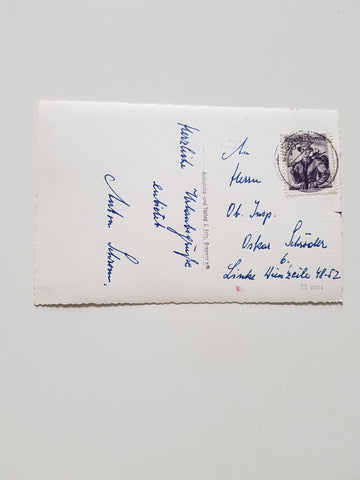 Herzliche Urlaubsgrüße
entbietet
Anton Schrom.
Aufnahme und Verlag
An
Herrn
Ob. Insp.
Oskar Schröder
6.,
Linke Wienzeile 48-52